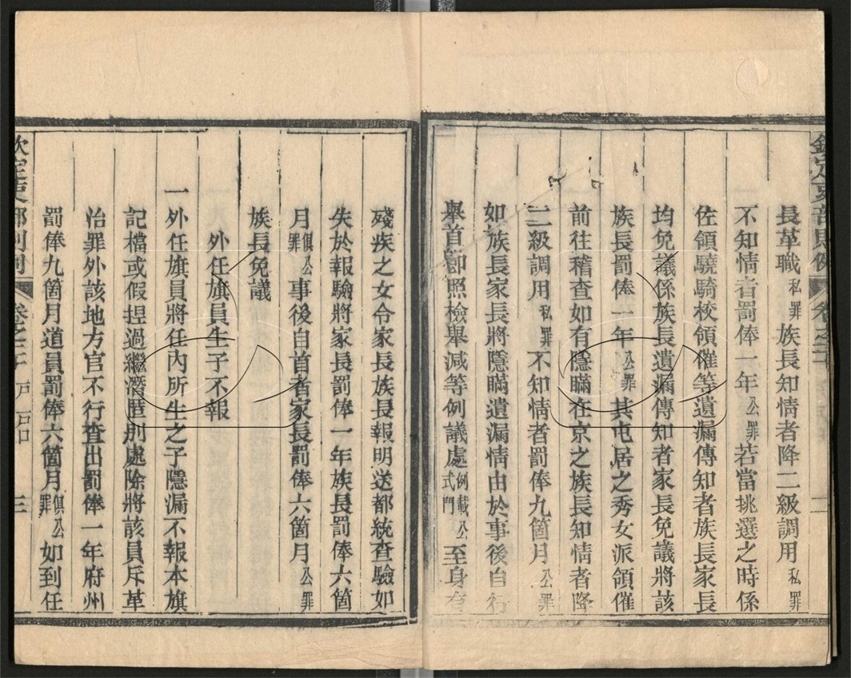 欽定吏部則例 卷之二十 二
長革職私罪族長知情者降二級調用私罪
不知情者罰俸一年公罪若當挑選之時係
佐領驍騎校領催等遺漏傳知者族長家長
均免議係族長遺漏傳知者家長免議將該
族長罰俸一年公罪其屯居之秀女派領催
前往稽查如有隱瞞在京之族長知情者降
二級調用私罪不知情者罰俸九箇月公罪
如族長家長將隱瞞遺漏情由於事後自行
舉首卽照檢舉減等例議處例載公式門至身有
殘疾之女令家長族長報明送都統查驗如
失於報驗將家長罰俸一年族長罰俸六箇
月俱公罪事後自首者家長罰俸六箇月公罪
族長免議
外任旗員生子不報
一外任旗員將任內所生之子隱漏不報本旗
記檔或假捏過繼潛匿別處除將該員斥革
治罪外該地方官不行查出罰俸一年府州
罰俸九箇月道員罰俸六箇月俱公罪如到任
欽定吏部則例 戶口 三